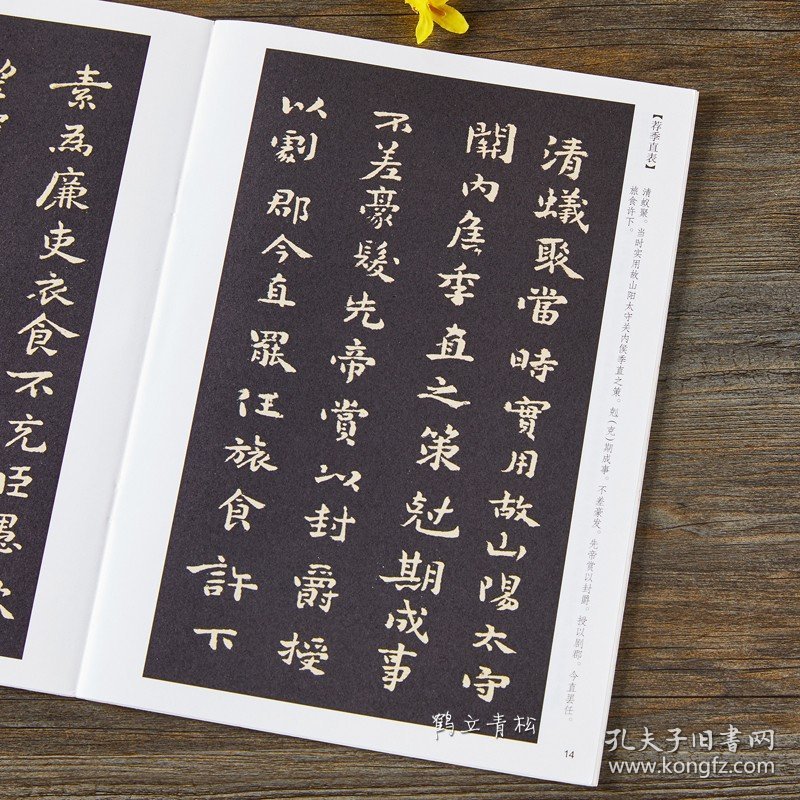 【荐季直表】
清蚁聚。当时实用故山阳太守关内侯季直之策。尅（克）期成事。不差豪发。先帝赏以封爵。授以剧郡。今直罢任。
旅食许下。
清蟻聚當時實用故山陽太守
關内矦季直之策尅期成事
不差豪髮先帝賞以封爵授
以劇郡今直罷任旅食許下
素為廉吏衣食不充臣愚欲
14
鹤立青松
孔夫子旧书网
www.kongfz.com